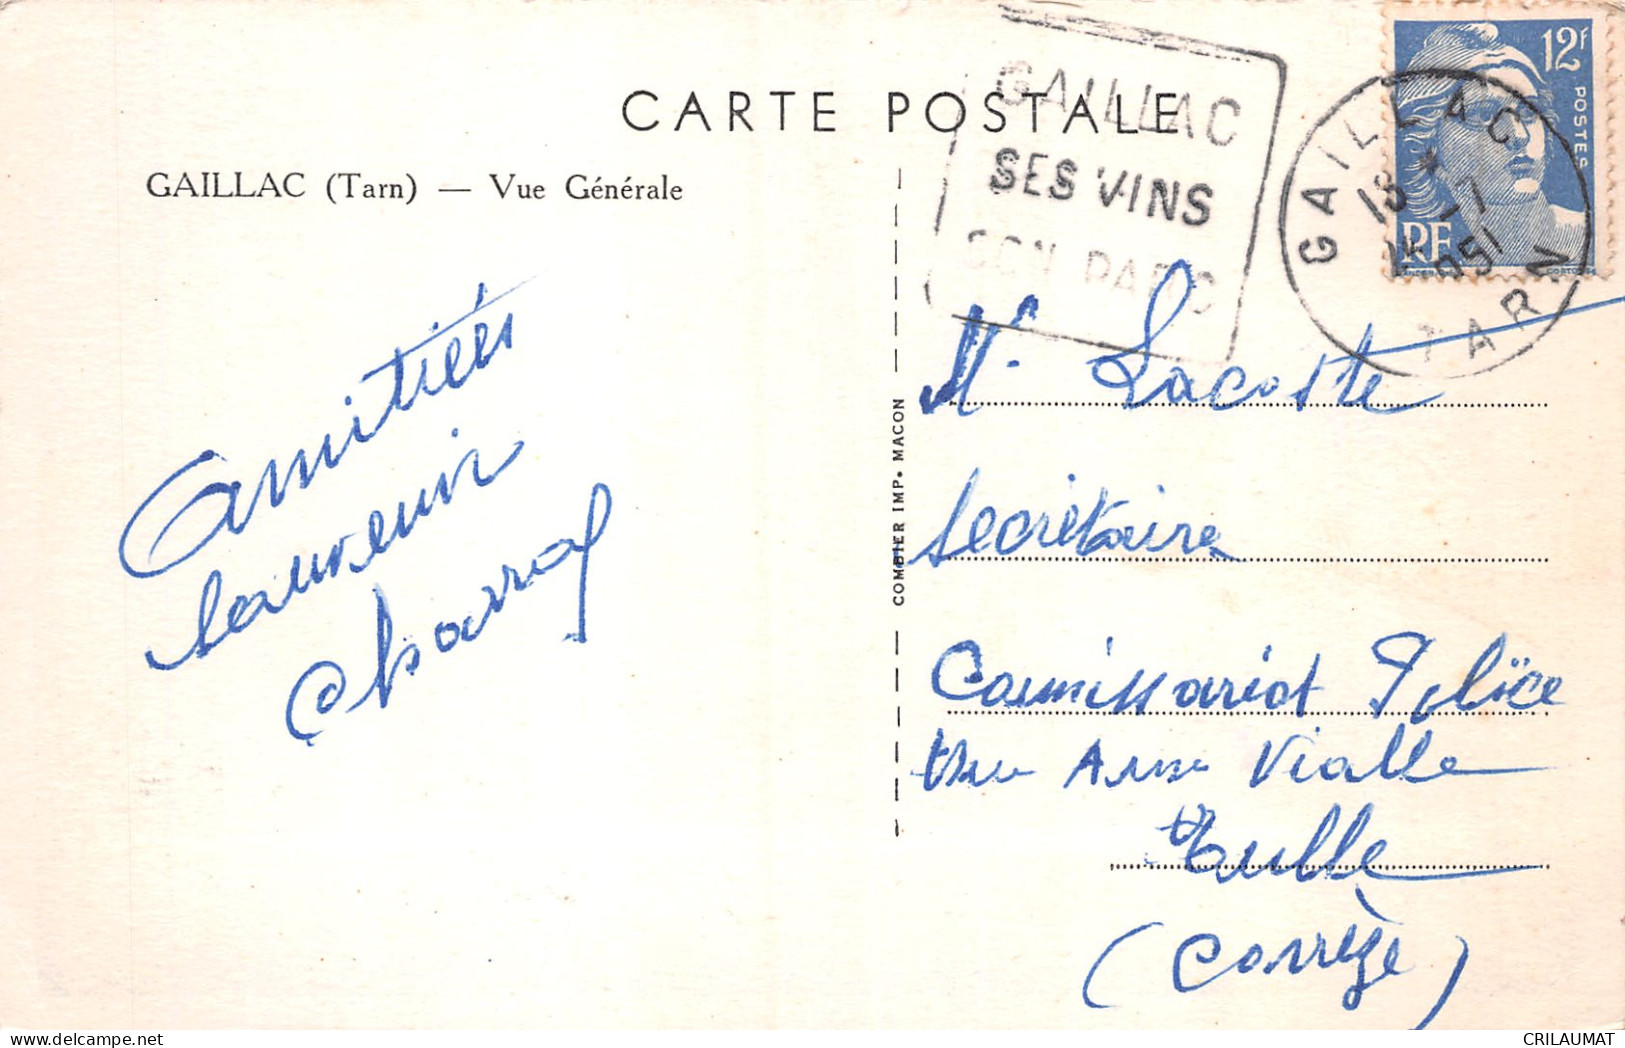 CARTE POSTALE
GAILLAC (Tarn) — Vue Générale
GAILLAC
SES VINS
SON PARC
12F
POSTES
RF
GAILLAC
18 H
17
51
TARN
Amitiés
souvenir
COMBIER IMP. MACON
Mr Lacoste
Secrétaire
Commissariat Police
Rue Anne Vialle
Tulle
(Corrèze)
CRILAUMAT